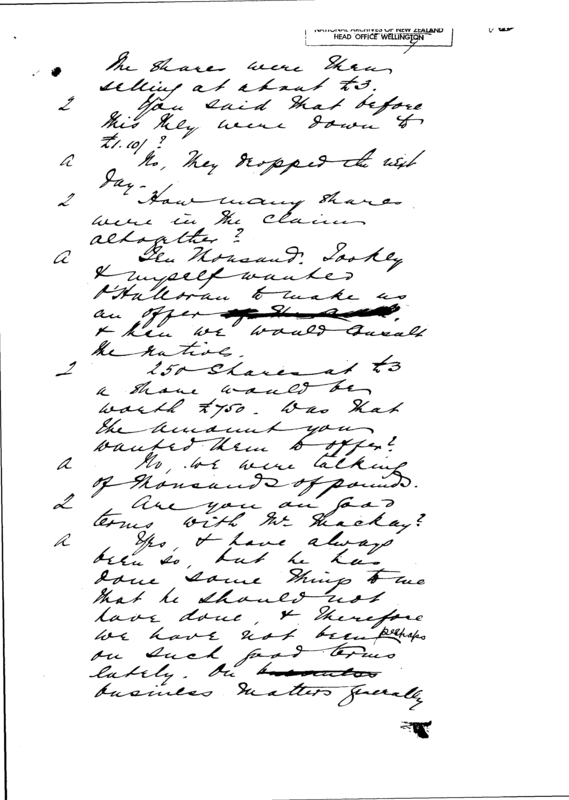 NATIONAL ARCHIVES OF NEW ZEALAND
HEAD OFFICE WELLINGTON
The shares were then
selling at about £3.
Q You said that before
this they were down to
£1.10/?
A No, they dropped the next
day.
Q How many shares
were in the claim
altogether?
A Ten thousand. Tookey
& myself wanted
O'Halloran to make us
an offer
& then we would consult
the natives.
Q 250 shares at £3
a share would be
worth £750. Was that
the amount you
wanted them to offer?
A No, we were talking
of thousands of pounds.
Q Are you on good
terms with Mr. Mackay?
A Yes, & have always
been so, but he has
done some things to me
that he should not
have done, & therefore
we have not been perhaps
on such good terms
lately. On business
business matters generally